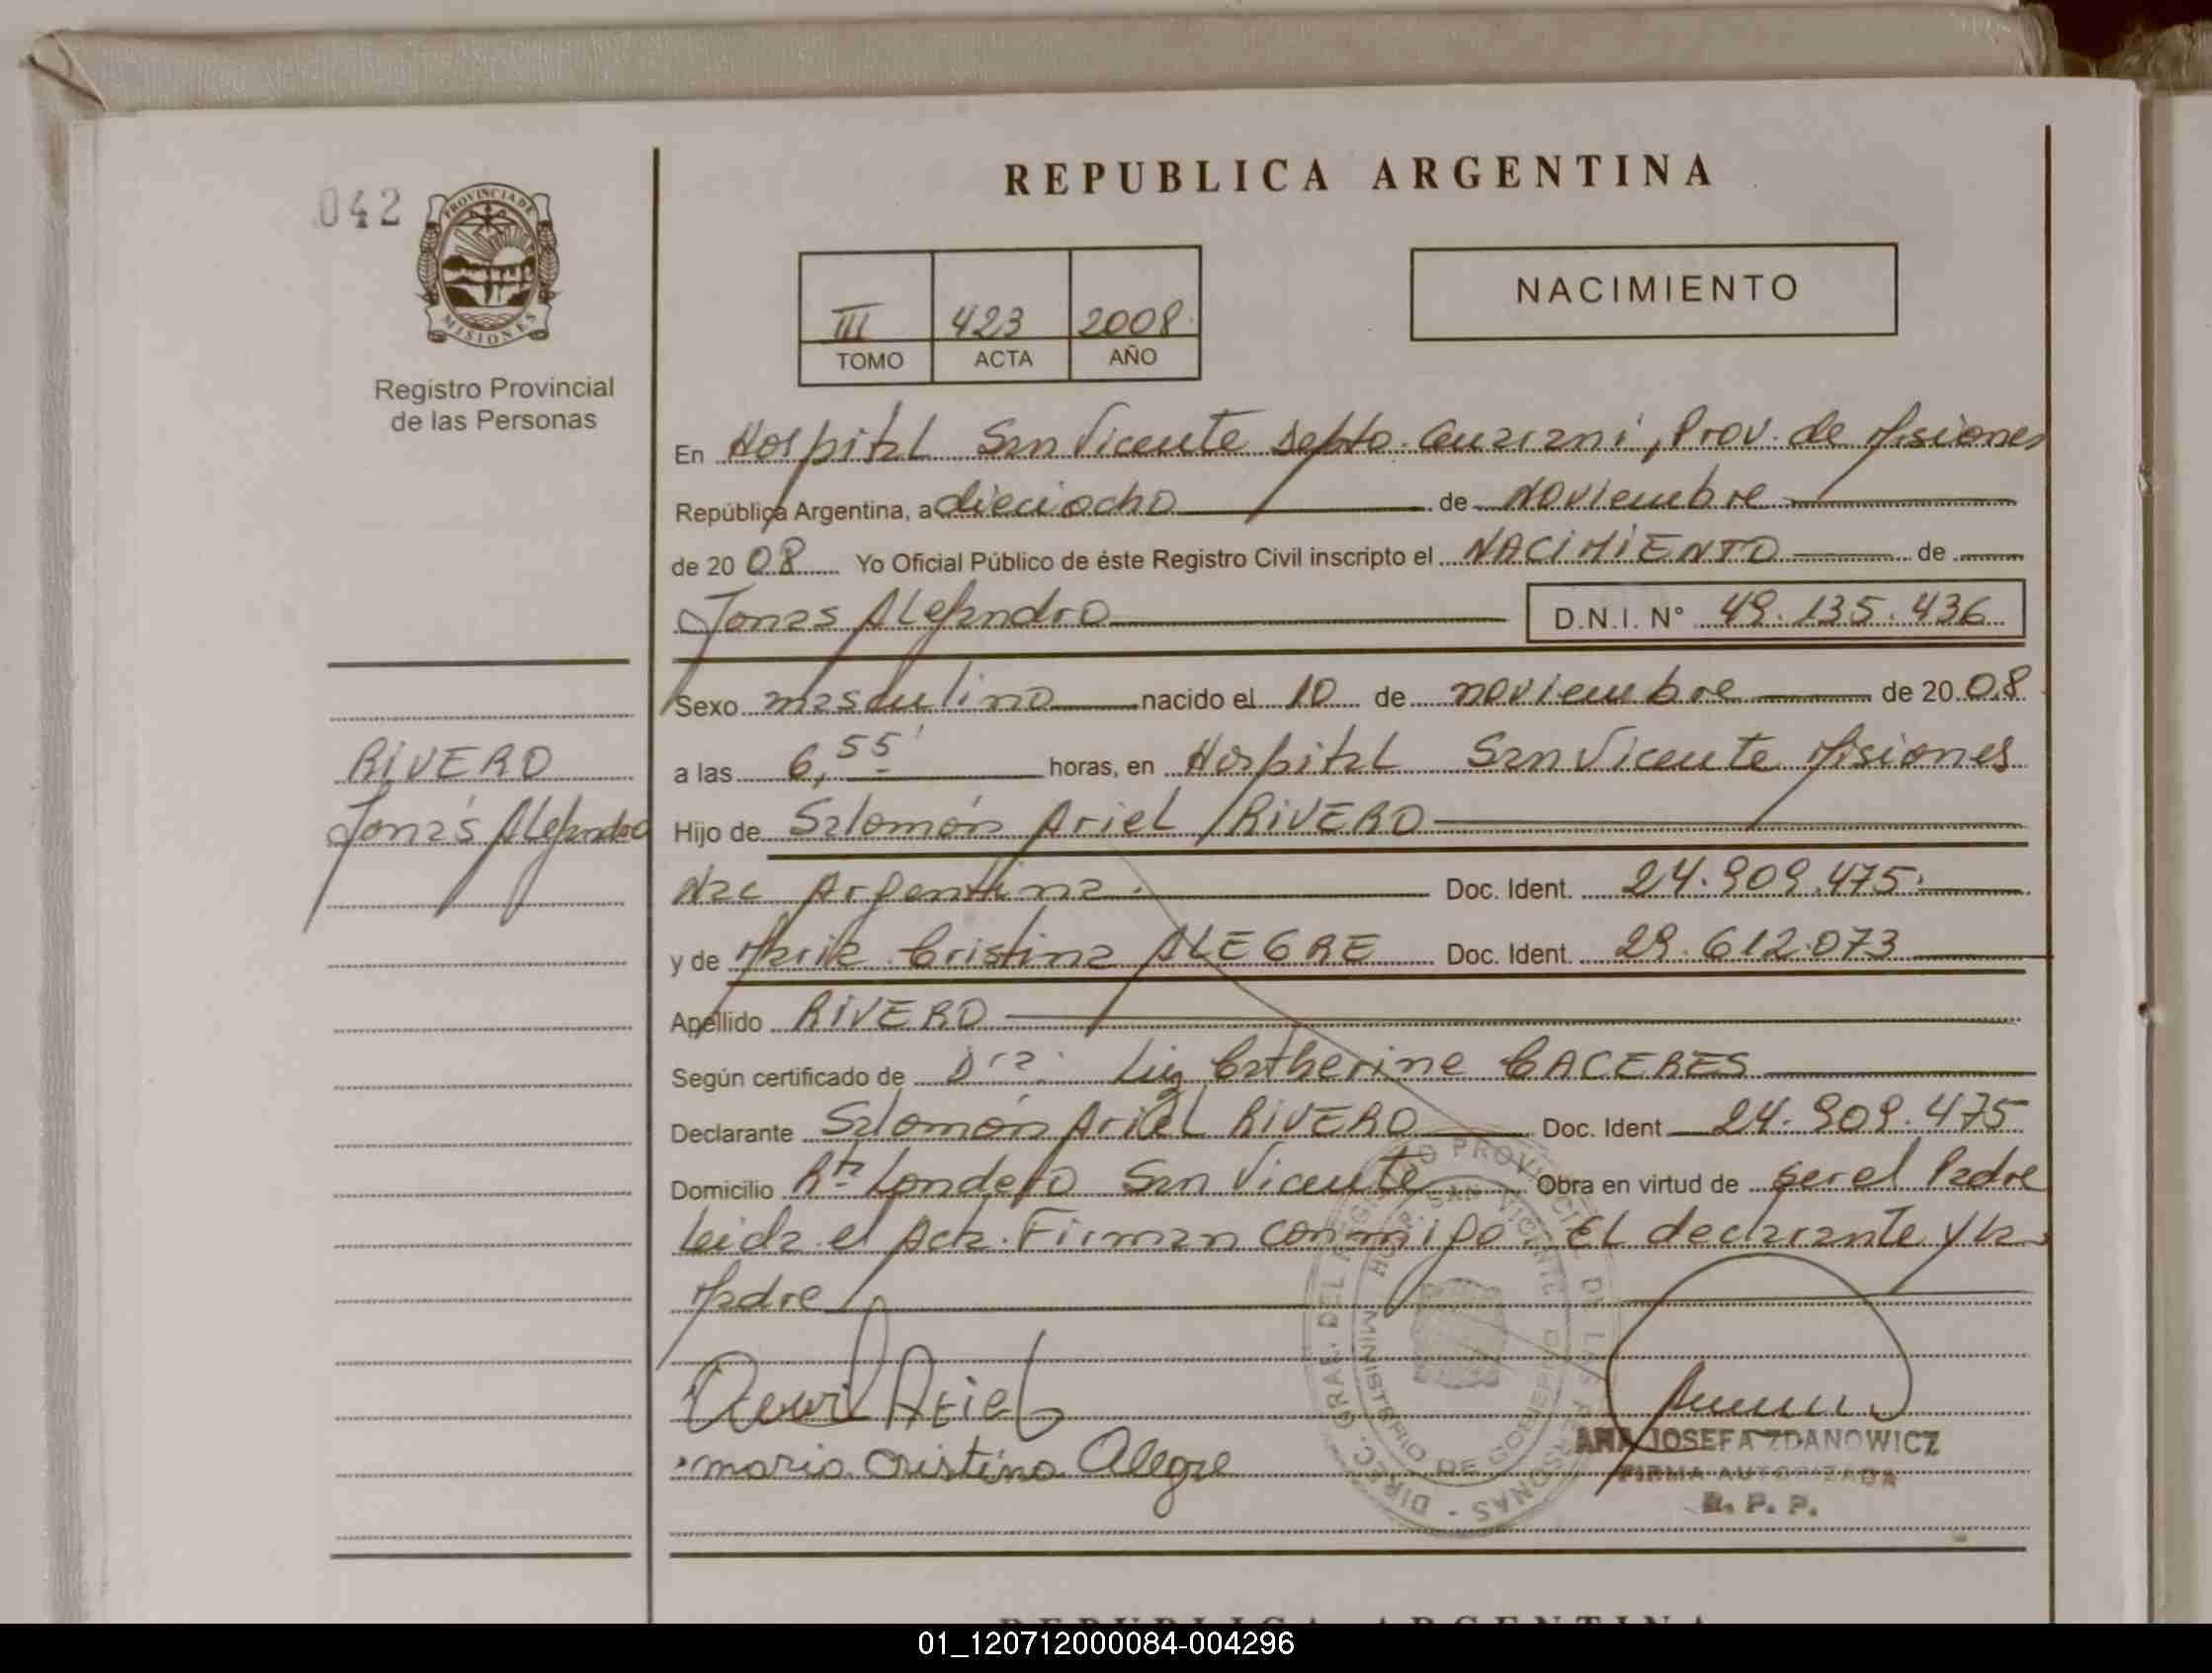 REPUBLICA ARGENTINA
042
PROVINCIA DE
MISIONES
Registro Provincial
de las Personas
III 423 2008
TOMO ACTA AÑO
NACIMIENTO
En Hospital San Vicente Depto. Guarani, Prov. de Misiones
República Argentina, a dieciocho de Noviembre
de 20 08 Yo Oficial Público de éste Registro Civil inscripto el NACIMIENTO de
Jonas Alejandro D.N.I. N° 49.135.436
Sexo masculino nacido el 10 de noviembre de 20 08
a las 6,55' horas, en Hospital San Vicente Misiones
RIVERO
Jonás Alejandro
Hijo de Salomón Ariel RIVERO
Nac Argentina. Doc. Ident. 24.909.475.
y de Maria Cristina ALEGRE Doc. Ident. 29.612.073
Apellido RIVERO
Según certificado de Dra. Liz Catherine CACERES
Declarante Salomón Ariel RIVERO Doc. Ident 24.909.475
Domicilio Rta Londero San Vicente Obra en virtud de ser el Padre
Leida el Acta. Firman conmigo. El declarante y la
Madre
Ariel
maria cristina Alegre
DIREC. GRAL. DEL REGISTRO PROVINCIAL DE LAS PERSONAS -
HOSP. SAN VICENTE
MINISTERIO DE GOBIERNO
ANA JOSEFA ZDANOWICZ
FIRMA AUTORIZADA
R. P. P.
REPUBLICA ARGENTINA
01_120712000084-004296